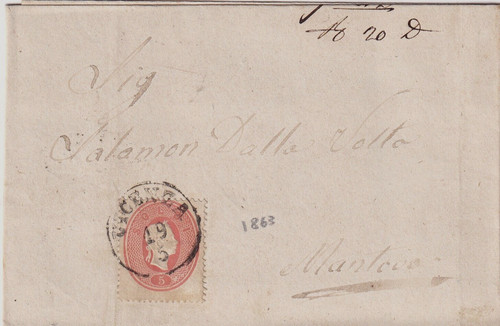 18 20 D
Sig
Salamon Dalla Volta
VICENZA
19
5
SOLDI
5
1863
Mantova